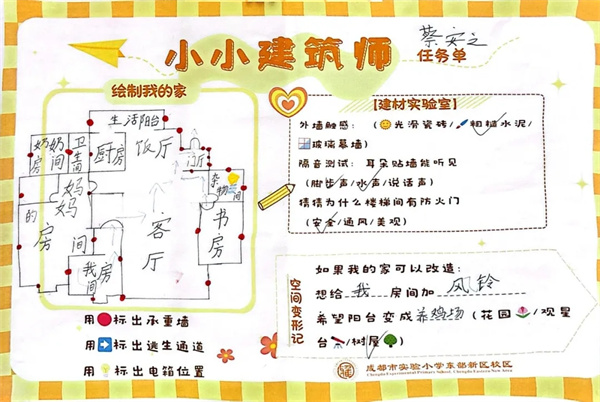 小小建筑师
蔡安之
任务单
绘制我的家
生活阳台
奶奶房间
卫生间
厨房
饭厅
门厅
杂物间
妈妈的房间
客厅
书房
我房间
用🔴标出承重墙
用➡️标出逃生通道
用💡标出电箱位置
【建材实验室】
外墙触感：（😊光滑瓷砖/🖌️粗糙水泥/
🪟玻璃幕墙）
隔音测试：耳朵贴墙能听见
（脚步声/水声/说话声）
猜猜为什么楼梯间有防火门
（安全/通风/美观）
空间变形记
如果我的家可以改造：
想给 我 房间加 风铃
希望阳台变成 养鸡场（花园🌷/观星
台🔭/树屋🌳）
成都市实验小学东部新区校区
Chengdu Experimental Primary School, Chengdu Eastern New Area